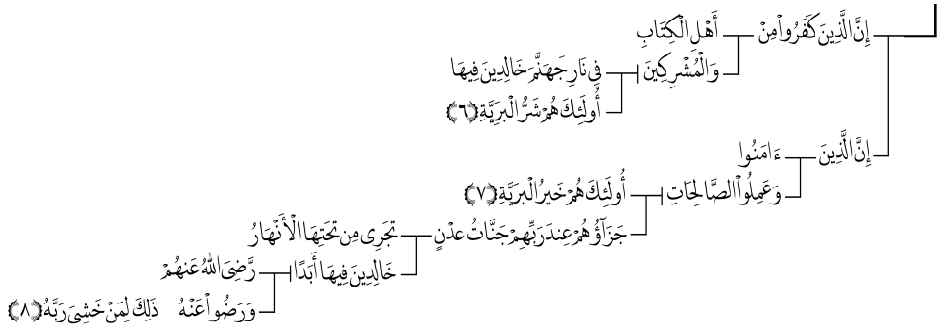 إِنَّ الَّذِينَ كَفَرُواْ مِنْ أَهْلِ الْكِتَابِ
وَالْمُشْرِكِينَ فِي نَارِ جَهَنَّمَ خَالِدِينَ فِيهَا
أُولَئِكَ هُمْ شَرُّ الْبَرِيَّةِ ﴿٦﴾
إِنَّ الَّذِينَ ءَامَنُوا
وَعَمِلُواْ الصَّالِحَاتِ أُولَئِكَ هُمْ خَيْرُ الْبَرِيَّةِ ﴿٧﴾
جَزَآؤُهُمْ عِندَ رَبِّهِمْ جَنَّاتُ عَدْنٍ تَجْرِى مِن تَحْتِهَا الْأَنْهَارُ
خَالِدِينَ فِيهَا أَبَدًا رَّضِىَ اللهُ عَنْهُمْ
وَرَضُواْ عَنْهُ ذَلِكَ لِمَنْ خَشِىَ رَبَّهُ ﴿٨﴾